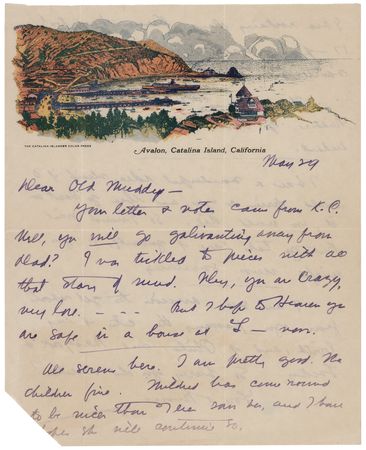 THE CATALINA ISLANDER COLOR PRESS
Avalon, Catalina Island, California
May 29
Dear Old Muddy—
Your letter & notes came from K.C.
Well, you will go galivanting away from
Dad? I was tickled to pieces with all
that story of mud. Hey, you are crazy,
very love. - - - But I hope to Heaven you
are safe in a house at L— now.
All serene here. I am pretty good. The
children fine. Mildred has come round
to be nicer than I ever saw her, and I have
hopes she will continue so.